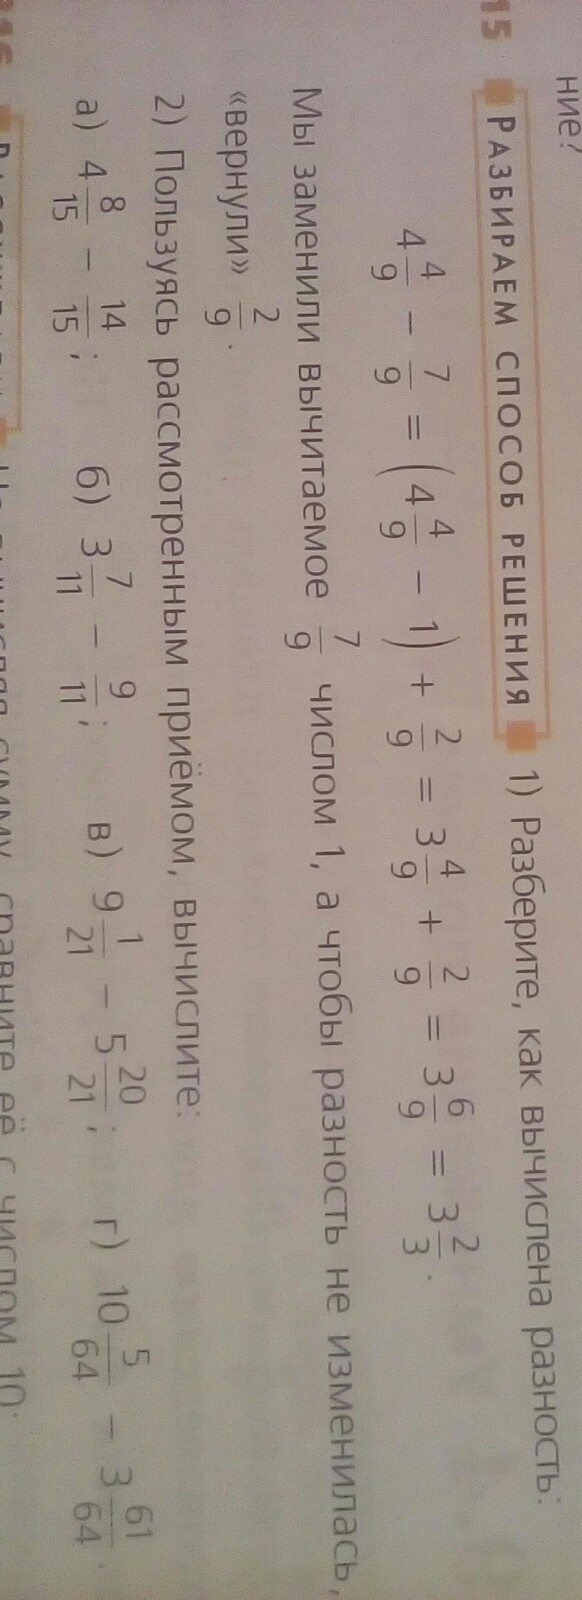 ние?
15 РАЗБИРАЕМ СПОСОБ РЕШЕНИЯ 1) Разберите, как вычислена разность:
4 4/9 − 7/9 = (4 4/9 − 1) + 2/9 = 3 4/9 + 2/9 = 3 6/9 = 3 2/3.
Мы заменили вычитаемое 7/9 числом 1, а чтобы разность не изменилась,
«вернули» 2/9.
2) Пользуясь рассмотренным приёмом, вычислите:
а) 4 8/15 − 14/15; б) 3 7/11 − 9/11; в) 9 1/21 − 5 20/21; г) 10 5/64 − 3 61/64.
сумму, сравните её с числом 10: